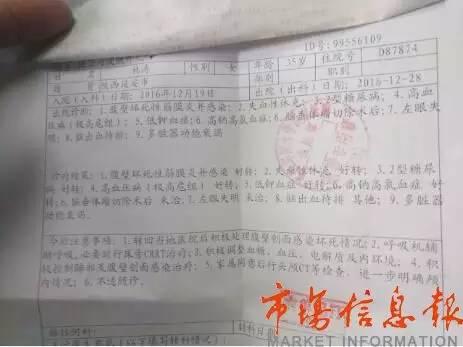 ID号:99556109
姓名 性别 女 年龄 35岁 住院号 D87874
陕西延安市 职别
入院(入科)日期:2016年12月19日 出院(出科)日期:2016-12-28
出院诊断:1.腹壁坏死性筋膜炎并感染;2.失血性休克;3.2型糖尿病;4.高血
压病(极高危组);5.低钾血症;6.高钠高氯血症;6.脑垂体瘤切除术后;7.左眼失
明;8.脑出血待排;9.多脏器功能衰竭
诊疗结果:1.腹壁坏死性筋膜炎并感染 好转;2.失血性休克 好转;3.2型糖尿
病 好转;4.高血压病(极高危组) 好转;5.低钾血症 好转;6.高钠高氯血症 好转
;6.脑垂体瘤切除术后 未治;7.左眼失明 未治;8.脑出血待排 其他;9.多脏器
功能衰竭。
今后注意事项:1.转回当地医院后积极处理腹壁创面感染坏死情况;2.呼吸机辅
助呼吸,必要时行床旁CRRT治疗;3.积极调整血糖、血压、电解质及内环境;4.积
极控制肺部及腹壁创面感染治疗;5.家属同意后行头颅CT等检查,进一步明确颅
内情况;6.不适随诊。
市场信息报
MARKET INFORMATION